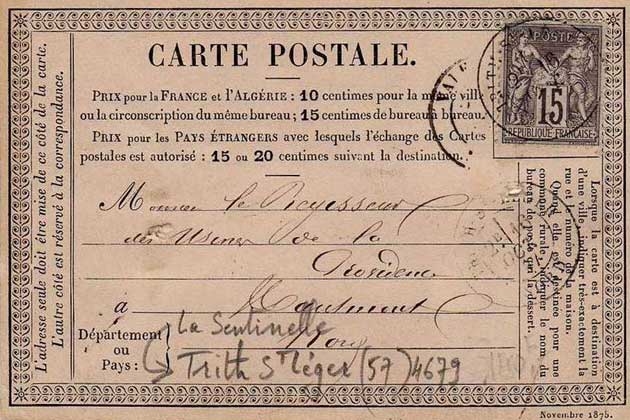 CARTE POSTALE.
PRIX pour la FRANCE et l'ALGÉRIE : 10 centimes pour la même ville
ou la circonscription du même bureau ; 15 centimes de bureau à bureau.
PRIX pour les PAYS ÉTRANGERS avec lesquels l'échange des Cartes
postales est autorisé : 15 ou 20 centimes suivant la destination.
POSTE
15
REPUBLIQUE FRANÇAISE
L'adresse seule doit être mise de ce côté de la carte.
L'autre côté est réservé à la correspondance.
Lorsque la carte est à destination
d'une ville, indiquer très-exactement la
rue et le numéro de la maison.
Quand elle est destinée pour une
commune rurale, indiquer le nom du
bureau de poste qui la dessert.
Monsieur le Régisseur
des Usines de la
Providence
à Hautmont
Département
ou
Pays :
Nord
La Sentinelle
Trith St Léger (57) 4679
Novembre 1875.